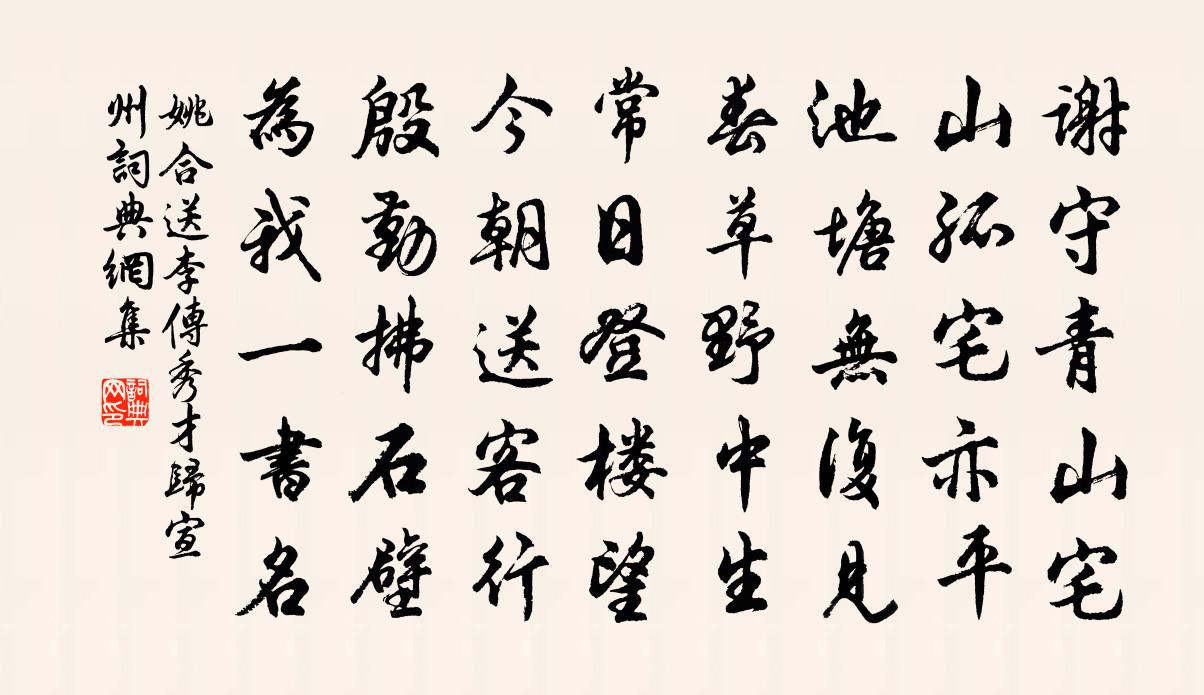 謝守青山宅
山孤宅亦平
池塘無復見
春草野中生
常日登楼望
今朝送客行
殷勤拂石壁
為我一書名
姚合送李傅秀才歸宣
州詞典網集
詞典网印